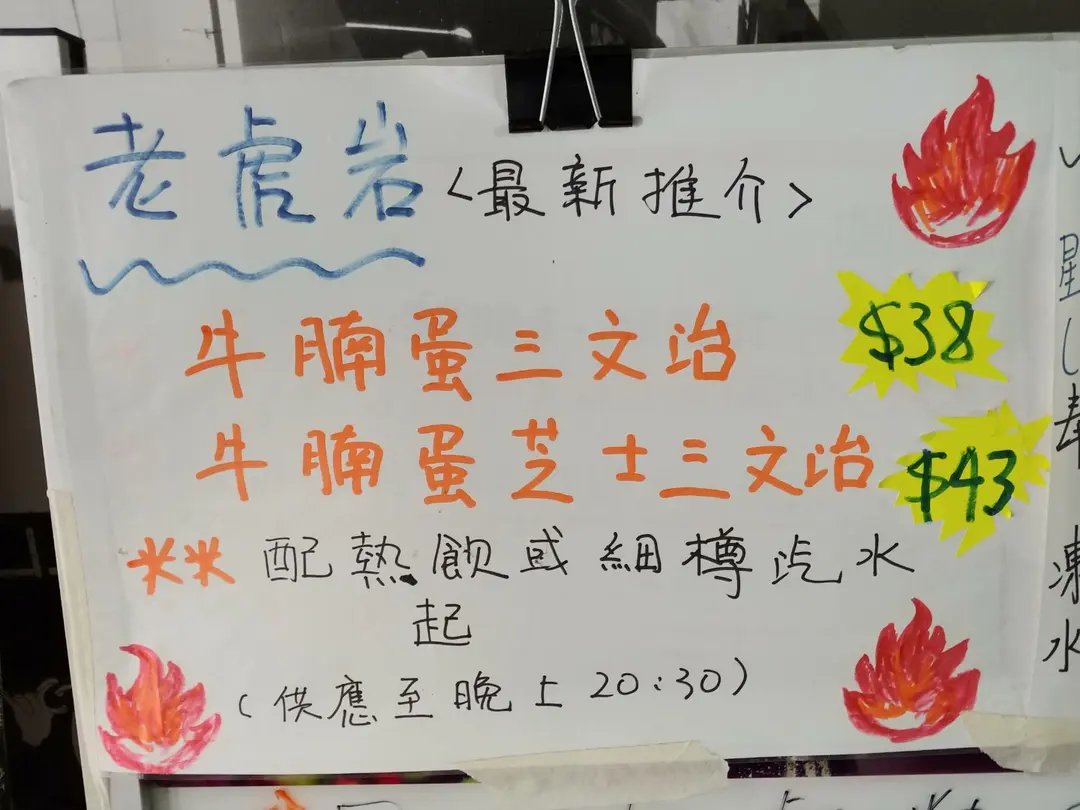 老虎岩<最新推介>
牛腩蛋三文治 $38
牛腩蛋芝士三文治 $43
** 配熱飲或細樽汽水
起
(供應至晚上20:30)
星(
凍
水